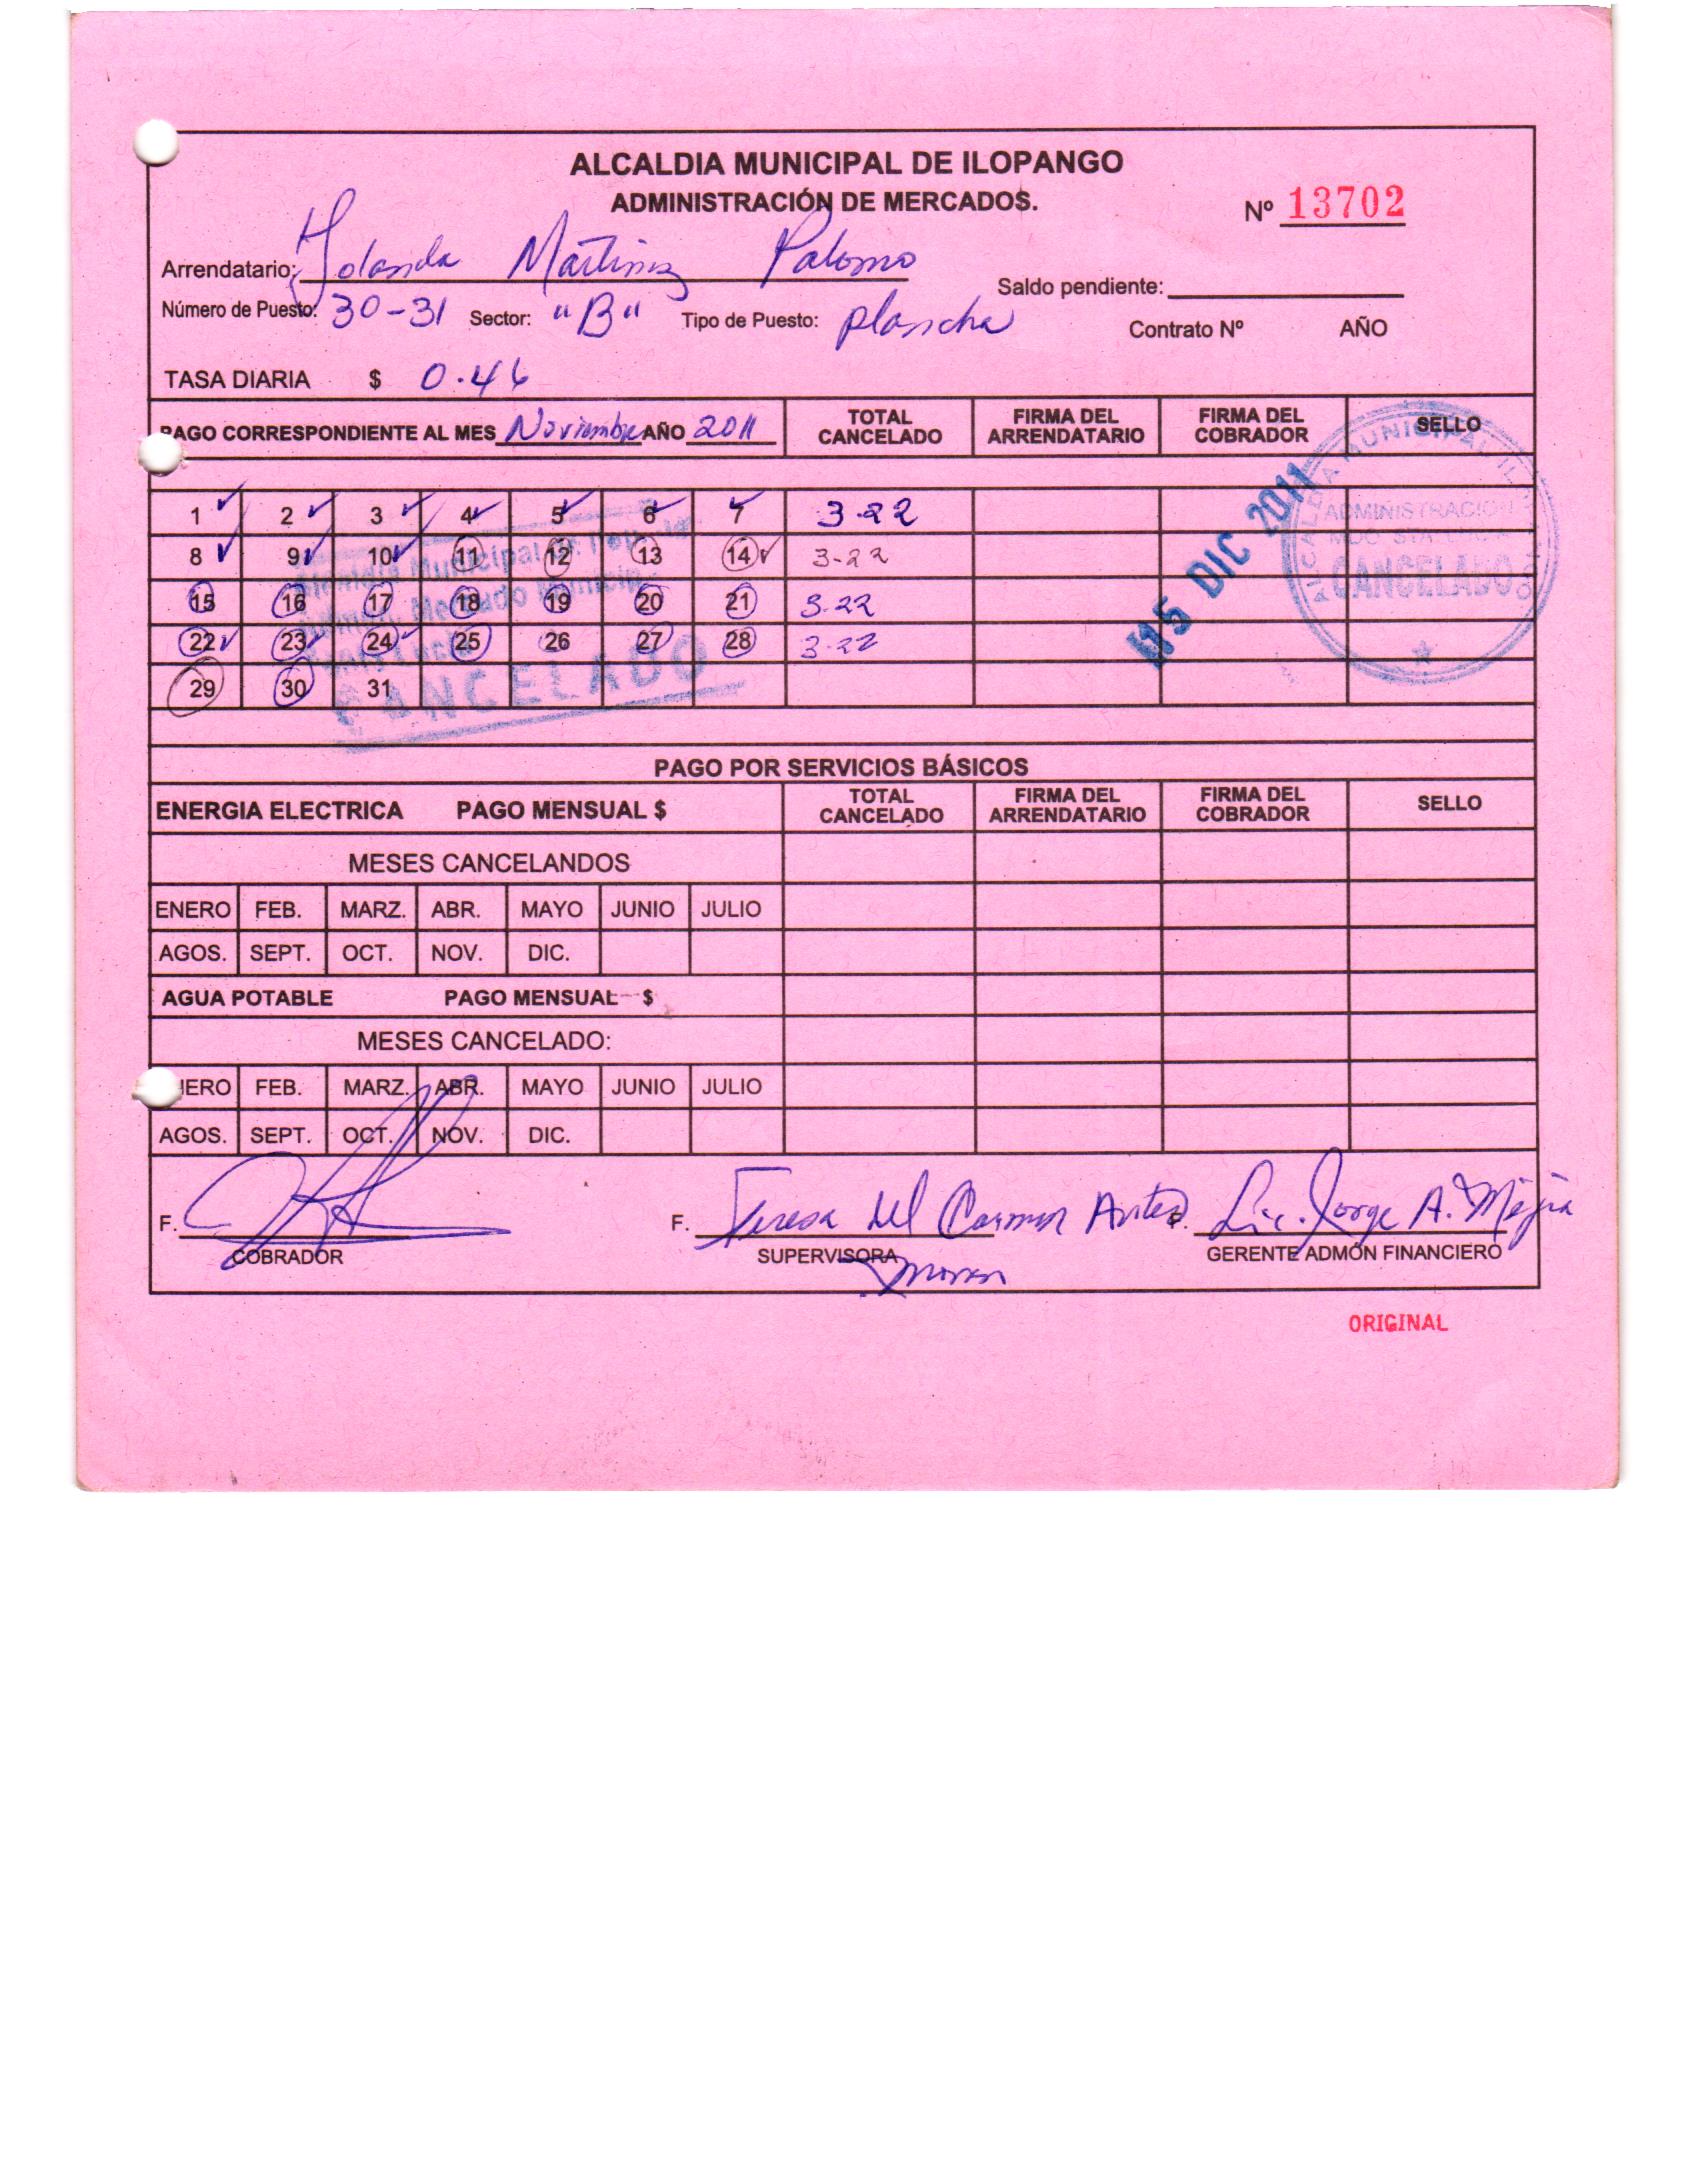 ALCALDIA MUNICIPAL DE ILOPANGO
ADMINISTRACIÓN DE MERCADOS.
Nº 13702
Arrendatario: Yolanda Martinez Palomo
Saldo pendiente:
Número de Puesto: 30-31 Sector: "B" Tipo de Puesto: plancha Contrato Nº AÑO
TASA DIARIA $ 0.46
PAGO CORRESPONDIENTE AL MES Noviembre AÑO 2011 TOTAL CANCELADO FIRMA DEL ARRENDATARIO FIRMA DEL COBRADOR SELLO
1 2 3 4 5 6 7 3-22
8 9 10 11 12 13 14 3-22
15 16 17 18 19 20 21 3-22
22 23 24 25 26 27 28 3-22
29 30 31
CANCELADO
15 DIC 2011
ALCALDIA MUNICIPAL ILOPANGO
ADMINISTRACION
CANCELADO
PAGO POR SERVICIOS BÁSICOS
ENERGIA ELECTRICA PAGO MENSUAL $ TOTAL CANCELADO FIRMA DEL ARRENDATARIO FIRMA DEL COBRADOR SELLO
MESES CANCELANDOS
ENERO FEB. MARZ. ABR. MAYO JUNIO JULIO
AGOS. SEPT. OCT. NOV. DIC.
AGUA POTABLE PAGO MENSUAL $
MESES CANCELADO:
ENERO FEB. MARZ. ABR. MAYO JUNIO JULIO
AGOS. SEPT. OCT. NOV. DIC.
F. F. Teresa del Carmen F. Lic. Jorge A. Mejia
COBRADOR SUPERVISORA GERENTE ADMÓN FINANCIERO
ORIGINAL